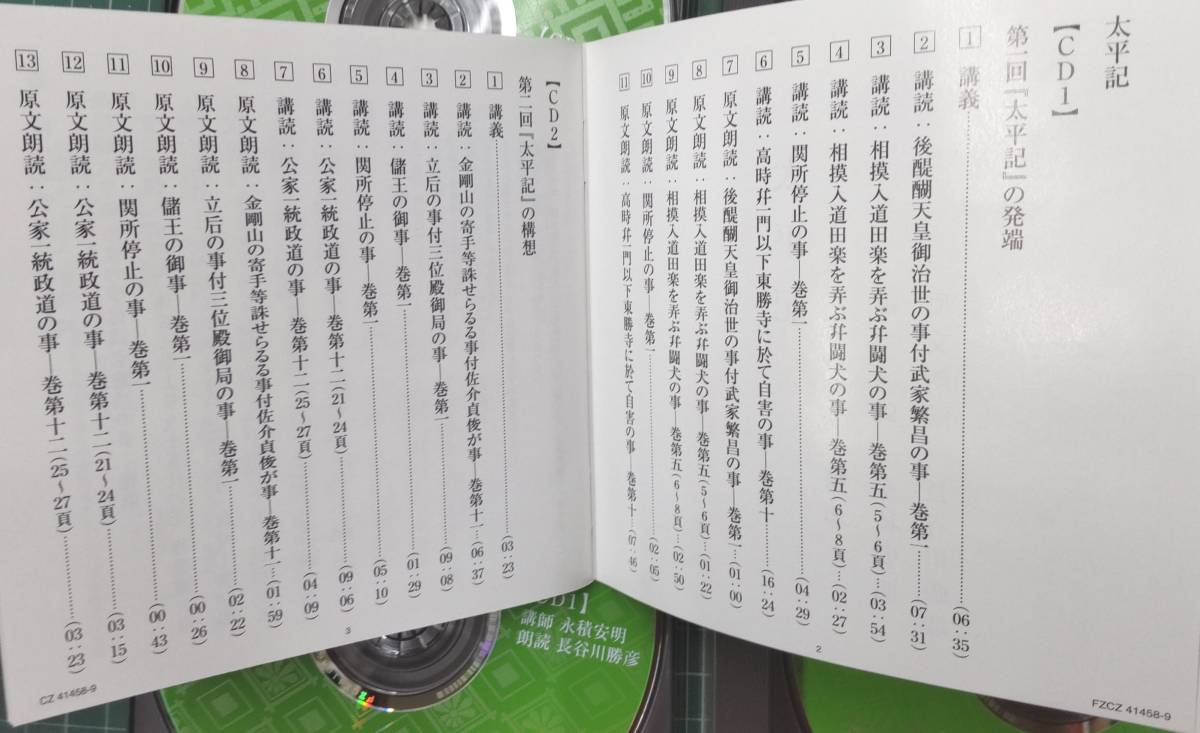 太平記
【CD1】
第一回『太平記』の発端
1 講義……(06:35)
2 講読：後醍醐天皇御治世の事付武家繁昌の事―巻第一…(07:31)
3 講読：相摸入道田楽を弄ぶ幷闘犬の事―巻第五(5～6頁)…(03:54)
4 講読：相摸入道田楽を弄ぶ幷闘犬の事―巻第五(6～8頁)…(02:27)
5 講読：関所停止の事―巻第一……(04:29)
6 講読：高時幷一門以下東勝寺に於て自害の事―巻第十……(16:24)
7 原文朗読：後醍醐天皇御治世の事付武家繁昌の事―巻第一…(01:00)
8 原文朗読：相摸入道田楽を弄ぶ幷闘犬の事―巻第五(5～6頁)…(01:22)
9 原文朗読：相摸入道田楽を弄ぶ幷闘犬の事―巻第五(6～8頁)…(02:50)
10 原文朗読：関所停止の事―巻第一……(02:05)
11 原文朗読：高時幷一門以下東勝寺に於て自害の事―巻第十…(07:46)
2
FZCZ 41458-9
【CD2】
第二回『太平記』の構想
1 講義……(03:23)
2 講読：金剛山の寄手等誅せらるる事付佐介貞俊が事―巻第十一…(06:37)
3 講読：立后の事付三位殿御局の事―巻第一……(09:08)
4 講読：儲王の御事―巻第一……(01:29)
5 講読：関所停止の事―巻第一……(05:10)
6 講読：公家一統政道の事―巻第十二(21～24頁)……(09:06)
7 講読：公家一統政道の事―巻第十二(25～27頁)……(04:09)
8 原文朗読：金剛山の寄手等誅せらるる事付佐介貞俊が事―巻第十一…(01:59)
9 原文朗読：立后の事付三位殿御局の事―巻第一……(02:22)
10 原文朗読：儲王の御事―巻第一……(00:26)
11 原文朗読：関所停止の事―巻第一……(00:43)
12 原文朗読：公家一統政道の事―巻第十二(21～24頁)……(03:15)
13 原文朗読：公家一統政道の事―巻第十二(25～27頁)……(03:23)
3
CZ 41458-9
CD1】
講師 永積安明
朗読 長谷川勝彦